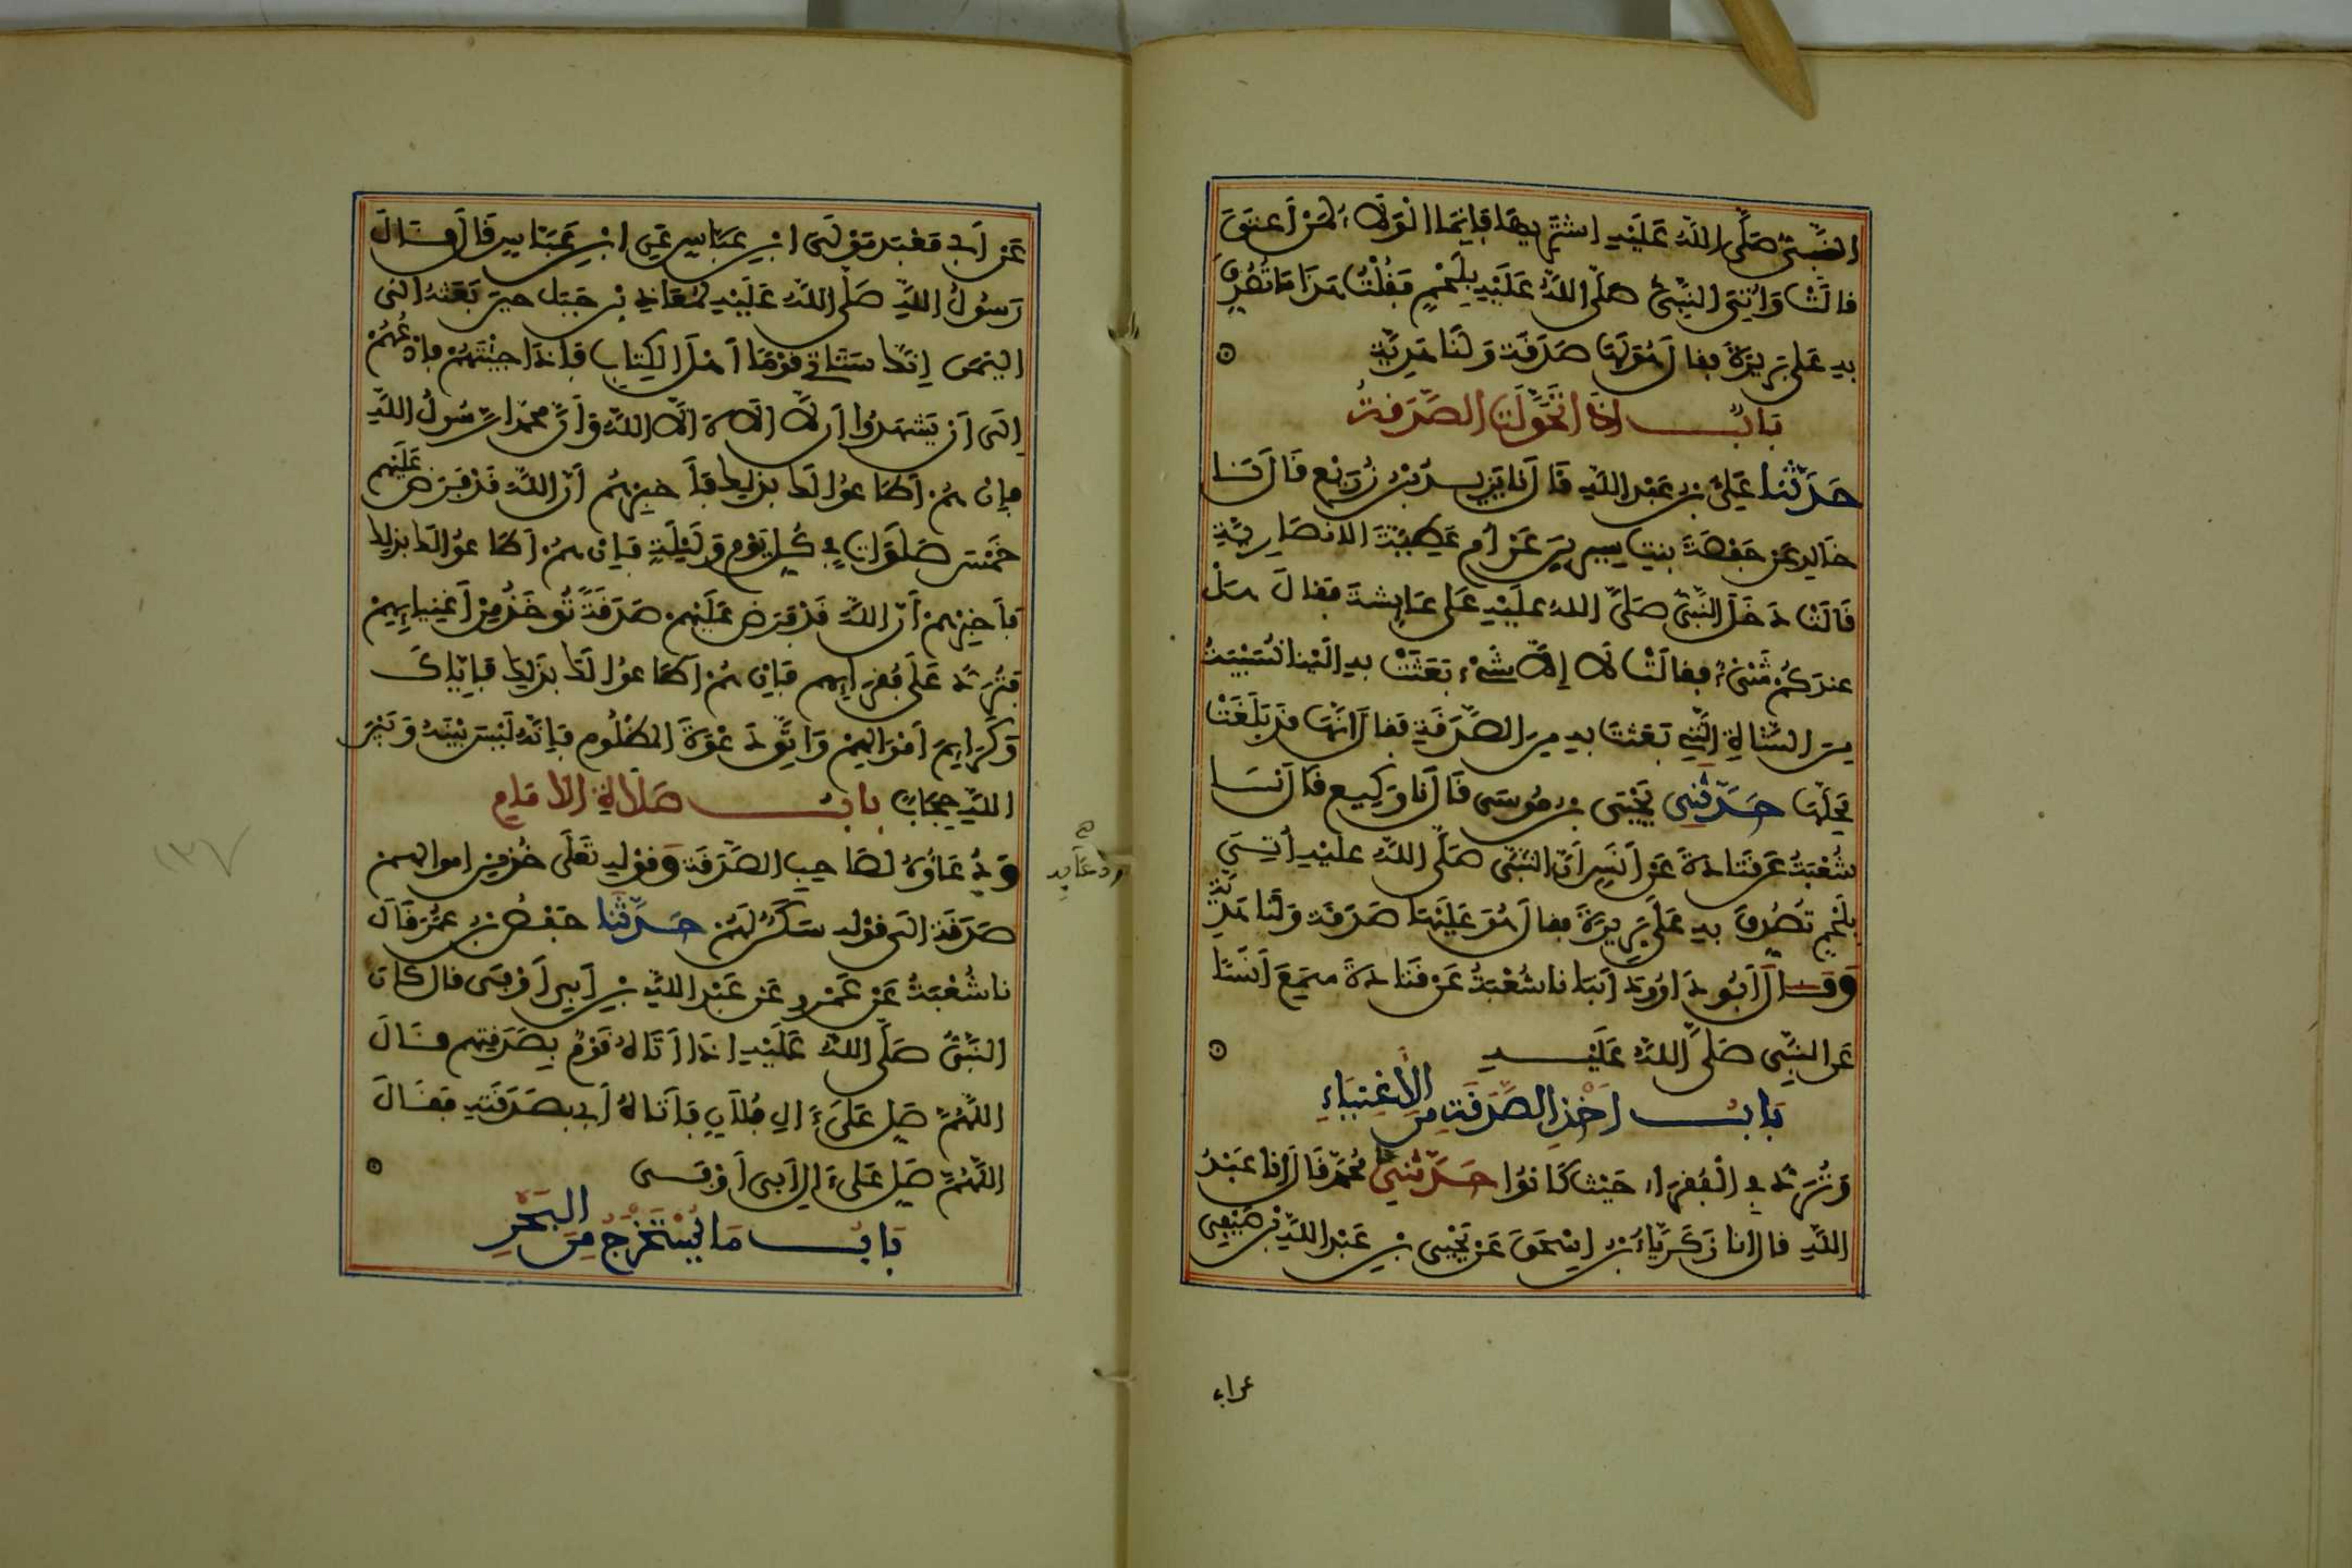 النَّبِىُّ صَلَّى اللَّهُ عَلَيْهِ اشْتَرِيهَا فَإِنَّمَا الْوَلَاءُ لِمَنْ اَعْتَقَ
قَالَتْ وَأُتِىَ النَّبِىُّ صَلَّى اللَّهُ عَلَيْهِ بِلَحْمٍ فَقُلْتُ هَذَا مَا تُصُدِّقَ
بِهِ عَلَى بَرِيرَةَ فقال هُوَ لَهَا صَدَقَةٌ وَلَنَا هَدِيَّةٌ
بَابُ اِذَا تَحَوَّلَتِ الصَّدَقَةُ
حَدَّثَنَا عَلِىُّ بْنُ عَبْدِ اللَّهِ قَالَ نَا يَزِيدُ بْنُ زُرَيْعٍ قَالَ نَا
خَالِدٌ عَنْ حَفْصَةَ بِنْتِ سِيرِينَ عَنْ أُمِّ عَطِيَّةَ الانْصَارِيَّةِ
قَالَتْ دَخَلَ النَّبِىُّ صَلَّى اللهُ عَلَيْهِ عَلَى عَايِشَةَ فَقَالَ هَلْ
عِنْدَكُمْ شَىْءٌ فقَالَتْ لَا إِلَّا شَىْءٌ بَعَثَتْ بِهِ الَيْنَا نُسَيْبَةُ
مِنَ الشَّاةِ الَّتِى بَعَثْتَ بِهِ مِنَ الصَّدَقَةِ فَقَالَ اِنَّهَا قَدْ بَلَغَتْ
مَحِلَّهَا حَدَّثَنِى يَحْيَى بْنُ مُوسَى قَالَ نَا وَكِيع قَالَ نَا
شُعْبَةُ عَنْ قَتَادَةَ عَنْ اَنَسٍ اَنَّ النَّبِىَّ صَلَّى اللَّهُ عَلَيْهِ أُتِىَ
بِلَحْمٍ تُصُدِّقَ بِهِ عَلَى بَرِيرَةَ فقال هُوَ عَلَيْهَا صَدَقَةٌ وَلَنَا هَدِيَّةٌ
وَقَالَ اَبُو دَاوُودَ اَنْبَانَا شُعْبَةُ عَنْ قَتَادَةَ سَمِعَ اَنَسًا
عَنِ النَّبِىِّ صَلَّى اللَّهُ عَلَيْهِ
بَابُ اَخْذِ الصَّدَقَةِ مِنَ الأَغْنِيَاءِ
وَتُرَدُّ فِى الْفُقَرَاءِ حَيْثُ كَانُوا حَدَّثَنِى مُحَمَّدٌ قَالَ انا عَبْدُ
اللَّهِ قال انا زَكَرِيَّاءُ بْنُ اِسْحَقَ عَنْ يَحْيَى بْنِ عَبْدِ اللَّهِ بْنِ صَيْفِىٍّ
عن ابي
عَنْ اَبِى مَعْبَدٍ مَوْلَى ابْنِ عَبَّاسٍ عَنِ ابْنِ عَبَّاسٍ قَالَ قَالَ
رَسُولُ اللَّهِ صَلَّى اللَّهُ عَلَيْهِ لِمُعَاذِ بْنِ جَبَلٍ حِينَ بَعَثَهُ الَى
الْيَمَنِ إِنَّكَ سَتَاتِى قَوْمًا اَهْلَ الْكِتَابِ فَاِذَا جِئْتَهُمْ فَادْعُهُمْ
اِلَى اَنْ يَشْهَدُوا اَن لَّا الَاهَ الَّا اللَّهُ وَاَنَّ مُحَمَّدًا رَّسُولُ اللَّهِ
فَإِنْ هُمْ اَطَاعُوا لَكَ بِذَلِكَ فَاَخْبِرْهُمْ اَنَّ اللَّهَ قَدْ فَرَضَ عَلَيْهِمْ
خَمْسَ صَلَوَاتٍ فِى كُلِّ يَوْمٍ وَلَيْلَةٍ فَإِنْ هُمْ اَطَاعُوا لَكَ بِذَلِكَ
فَاَخْبِرْهُمْ اَنَّ اللَّهَ قَدْ فَرَضَ عَلَيْهِمْ صَدَقَةً تُوخَذُ مِنْ اَغْنِيَايِهِمْ
فَتُرَدُّ عَلَى فُقَرَايِهِمْ فَإِنْ هُمْ اَطَاعُوا لَكَ بِذَلِكَ فَإِيَّاكَ
وَكَرَايِمَ اَمْوَالِهِمْ وَاتَّقِ دَعْوَةَ الْمَظْلُومِ فَإِنَّهُ لَيْسَ بَيْنَهُ وَبَيْنَ
اللَّهِ حِجَابٌ بَابُ صَلَاةِ الْاِمَامِ
وَدُعَاؤُهُ لِصَاحِبِ الصَّدَقَةِ وَقَوْلِهِ تَعَلَى خُذْ مِنْ اموالهمْ
ودعايه
صح
صَدَقَةً الَى قَوْلِهِ سَكَنٌ لَهُمْ حَدَّثَنَا حَفْصُ بْنُ عُمَرَ قَالَ
نا شُعْبَةُ عَنْ عَمْرٍو عَنْ عَبْدِ اللَّهِ بْنِ اَبِى اَوْفَى قال كَانَ
النَّبِىُّ صَلَّى اللَّهُ عَلَيْهِ اِذَا اَتَاهُ قَوْمٌ بِصَدَقَتِهِمْ قَالَ
اللَّهُمَّ صَلِّ عَلَى ءَالِ فُلَانٍ فَاَتَاهُ اَبِى بِصَدَقَتِهِ فَقَالَ
اللَّهُمَّ صَلِّ عَلَى ءَالِ اَبِى اَوْفَى
بَابُ مَا يُسْتَخْرَجُ مِنَ الْبَحْرِ